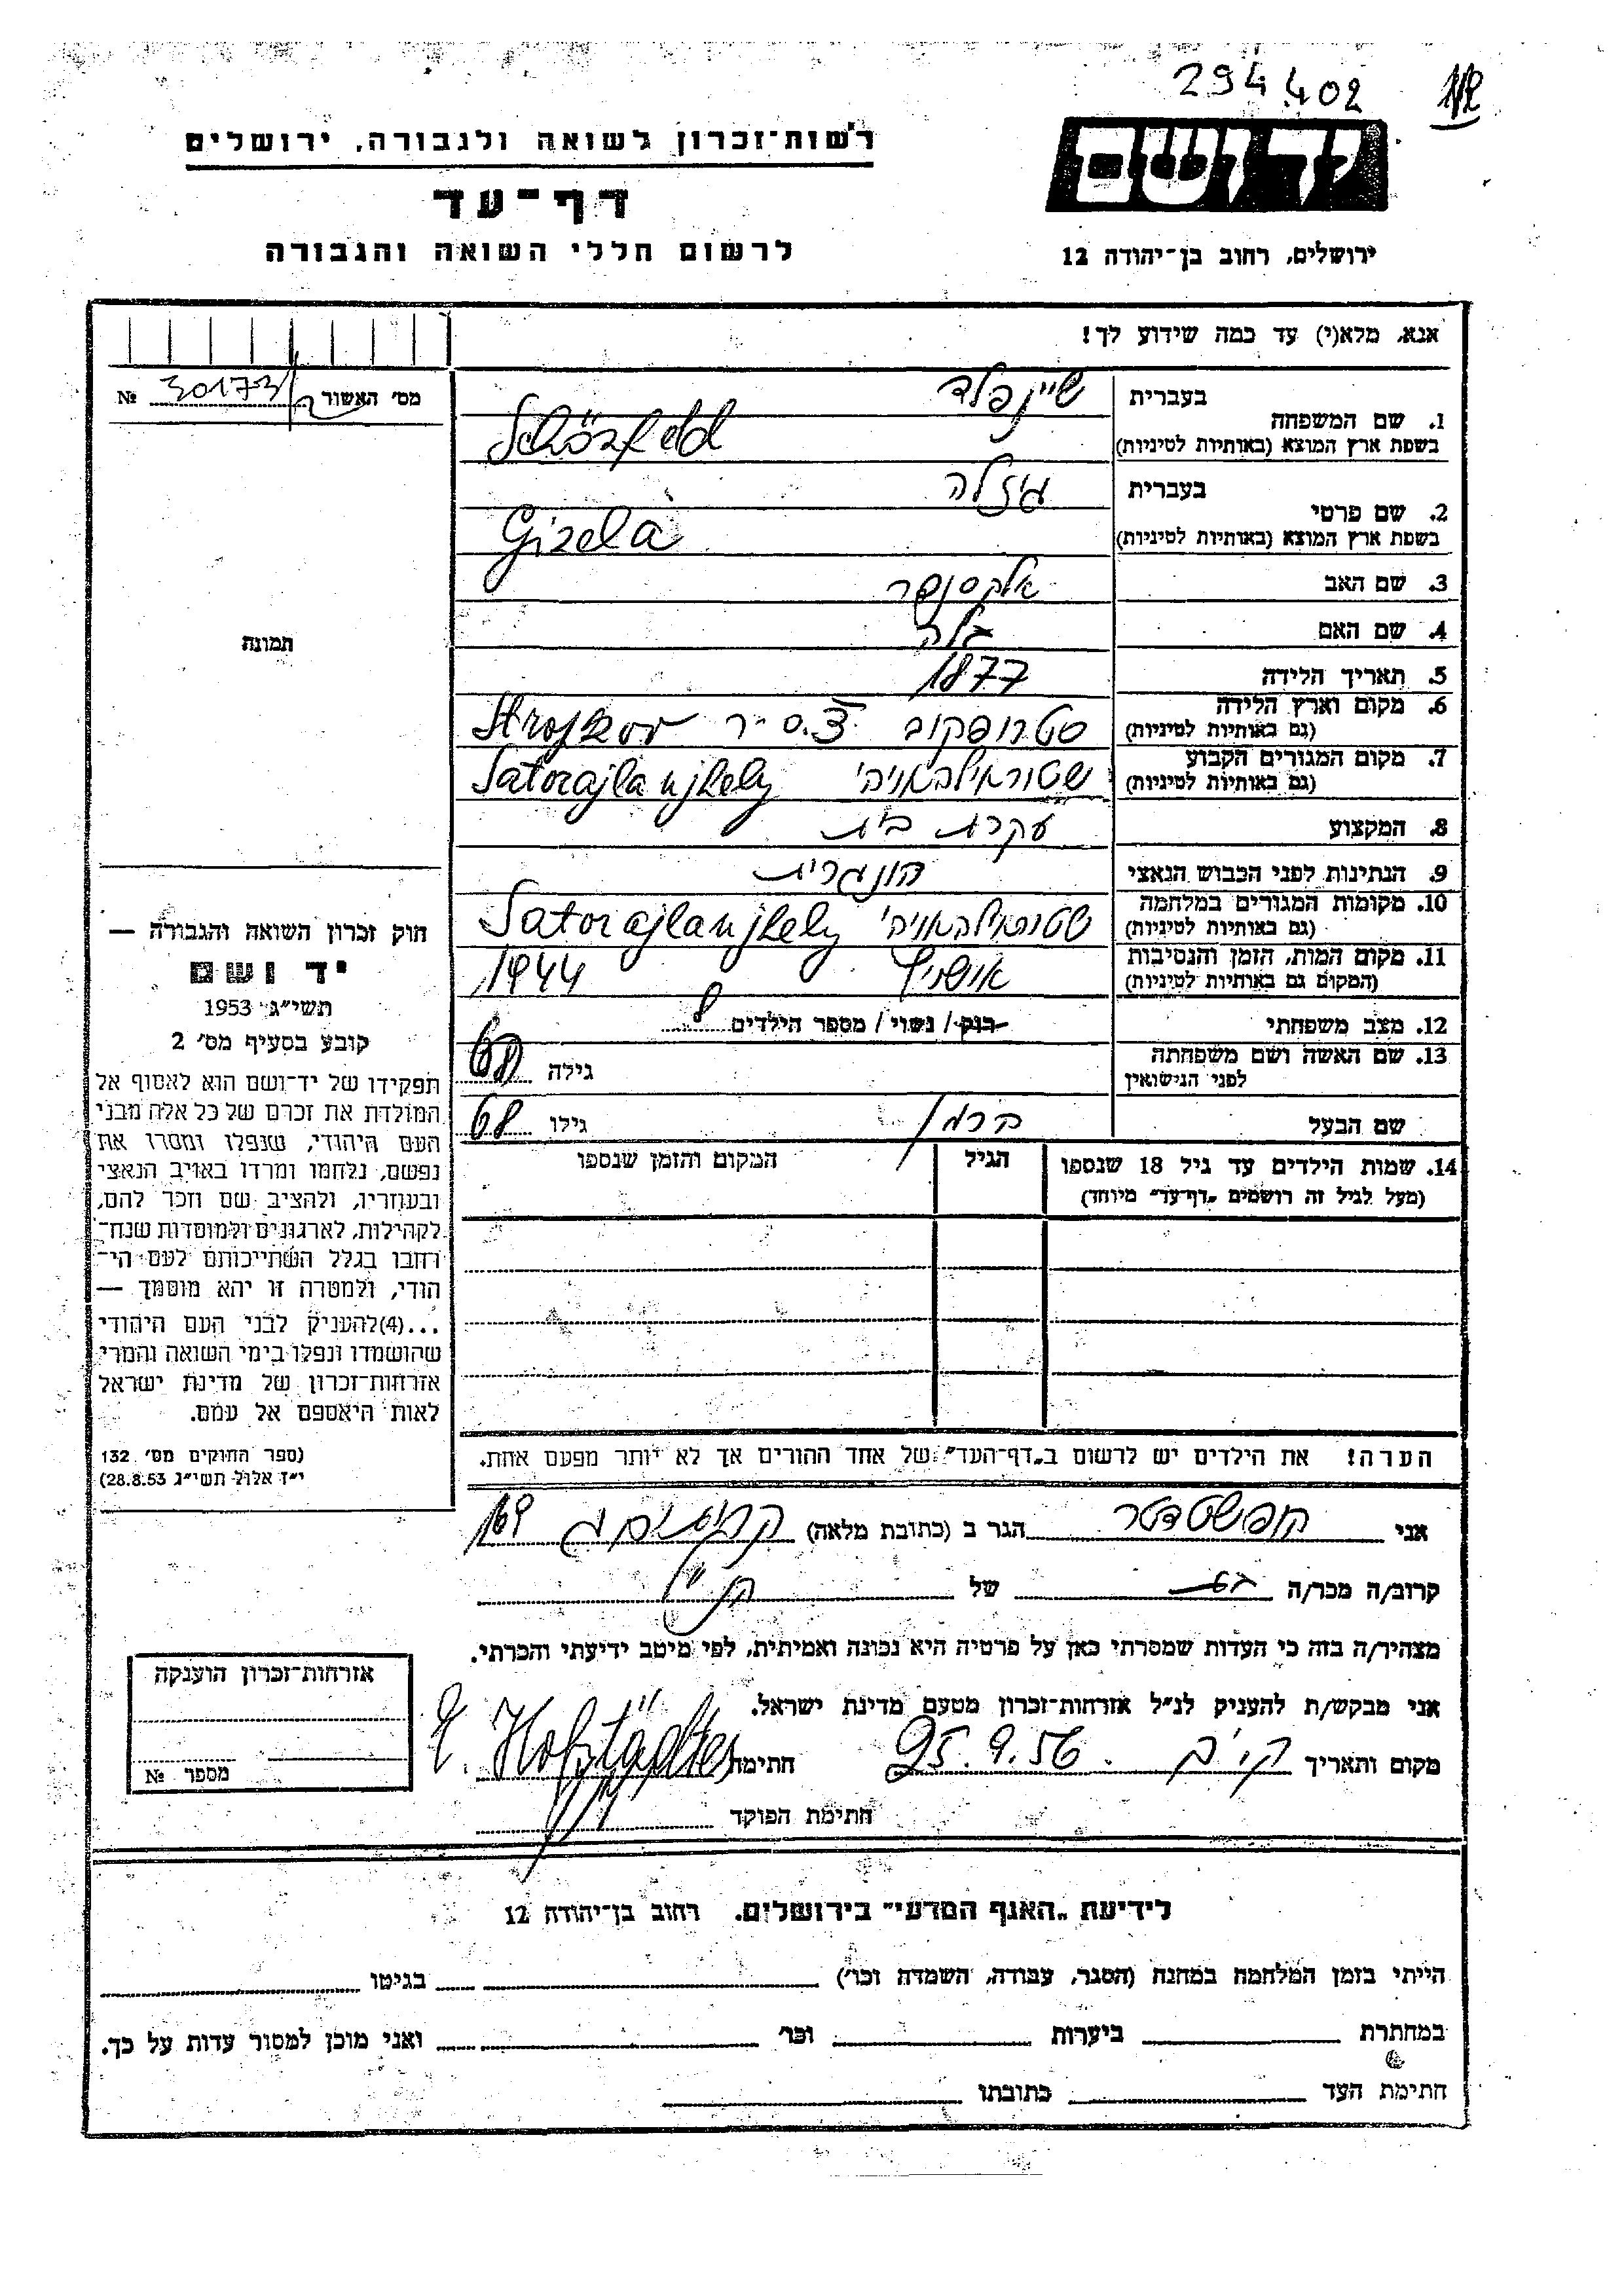 294402
יד ושם
רשות־זכרון לשואה ולגבורה, ירושלים
דף־עד
לרשום חללי השואה והגבורה
ירושלים, רחוב בן־יהודה 12
אנא, מלא(י) עד כמה שידוע לך!
מס' האשור 30173 №
1. שם המשפחה בעברית שיינפלד
בשפת ארץ המוצא (באותיות לטיניות) Schönfeld
2. שם פרטי בעברית גיזלה
בשפת ארץ המוצא (באותיות לטיניות) Gizela
3. שם האב אלקסנדר
4. שם האם
5. תאריך הלידה 1877
6. מקום וארץ הלידה סטרופקוב צ.ס-ר Stropkov
(גם באותיות לטיניות)
7. מקום המגורים הקבוע Satorajlaujhely
(גם באותיות לטיניות)
8. המקצוע עקרת בית
9. הנתינות לפני הכבוש הנאצי הונגרית
10. מקומות המגורים במלחמה Satorajlaujhely
(גם באותיות לטיניות)
11. מקום המות, הזמן והנסיבות אושויץ 1944
(המקום גם באותיות לטיניות)
12. מצב משפחתי רווק / נשוי / מספר הילדים 8
13. שם האשה ושם משפחתה
לפני הנישואין גילה
שם הבעל הרמן גילו 68
14. שמות הילדים עד גיל 18 שנספו הגיל המקום והזמן שנספו
(מעל לגיל זה רושמים „דף־עד" מיוחד)
הערה! את הילדים יש לרשום ב„דף־העד" של אחד ההורים אך לא יותר מפעם אחת.
תמונה
חוק זכרון השואה והגבורה —
יד ושם
תשי"ג 1953
קובע בסעיף מס' 2
תפקידו של יד־ושם הוא לאסוף אל
המולדת את זכרם של כל אלה מבני
העם היהודי, שנפלו ומסרו את
נפשם, נלחמו ומרדו באויב הנאצי
ובעוזריו, ולהציב שם וזכר להם,
לקהילות, לארגונים ולמוסדות שנח־
רבו בגלל השתייכותם לעם הי־
הודי, ולמטרה זו יהא מוסמך —
...(4) להעניק לבני העם היהודי
שהושמדו ונפלו בימי השואה והמרי
אזרחות־זכרון של מדינת ישראל
לאות היאספם אל עמם.
(ספר החוקים מס' 132
י"ז אלול תשי"ג 28.8.53)
אני הופשטדטר הגר ב (כתובת מלאה) 169
קרוב/ה מכר/ה בת של הנ"ל
מצהיר/ה בזה כי העדות שמסרתי כאן על פרטיה היא נכונה ואמיתית, לפי מיטב ידיעתי והכרתי.
אני מבקש/ת להעניק לנ"ל אזרחות־זכרון מטעם מדינת ישראל.
מקום ותאריך 25.9.56 חתימה Hofstädter
חתימת הפוקד
אזרחות־זכרון הוענקה
מספר №
לידיעת „האגף המדעי" בירושלים, רחוב בן־יהודה 12
הייתי בזמן המלחמה במחנה (הסגר, עבודה, השמדה וכו') בגיטו
במחתרת ביערות וכו' ואני מוכן למסור עדות על כך.
חתימת העד כתובתו